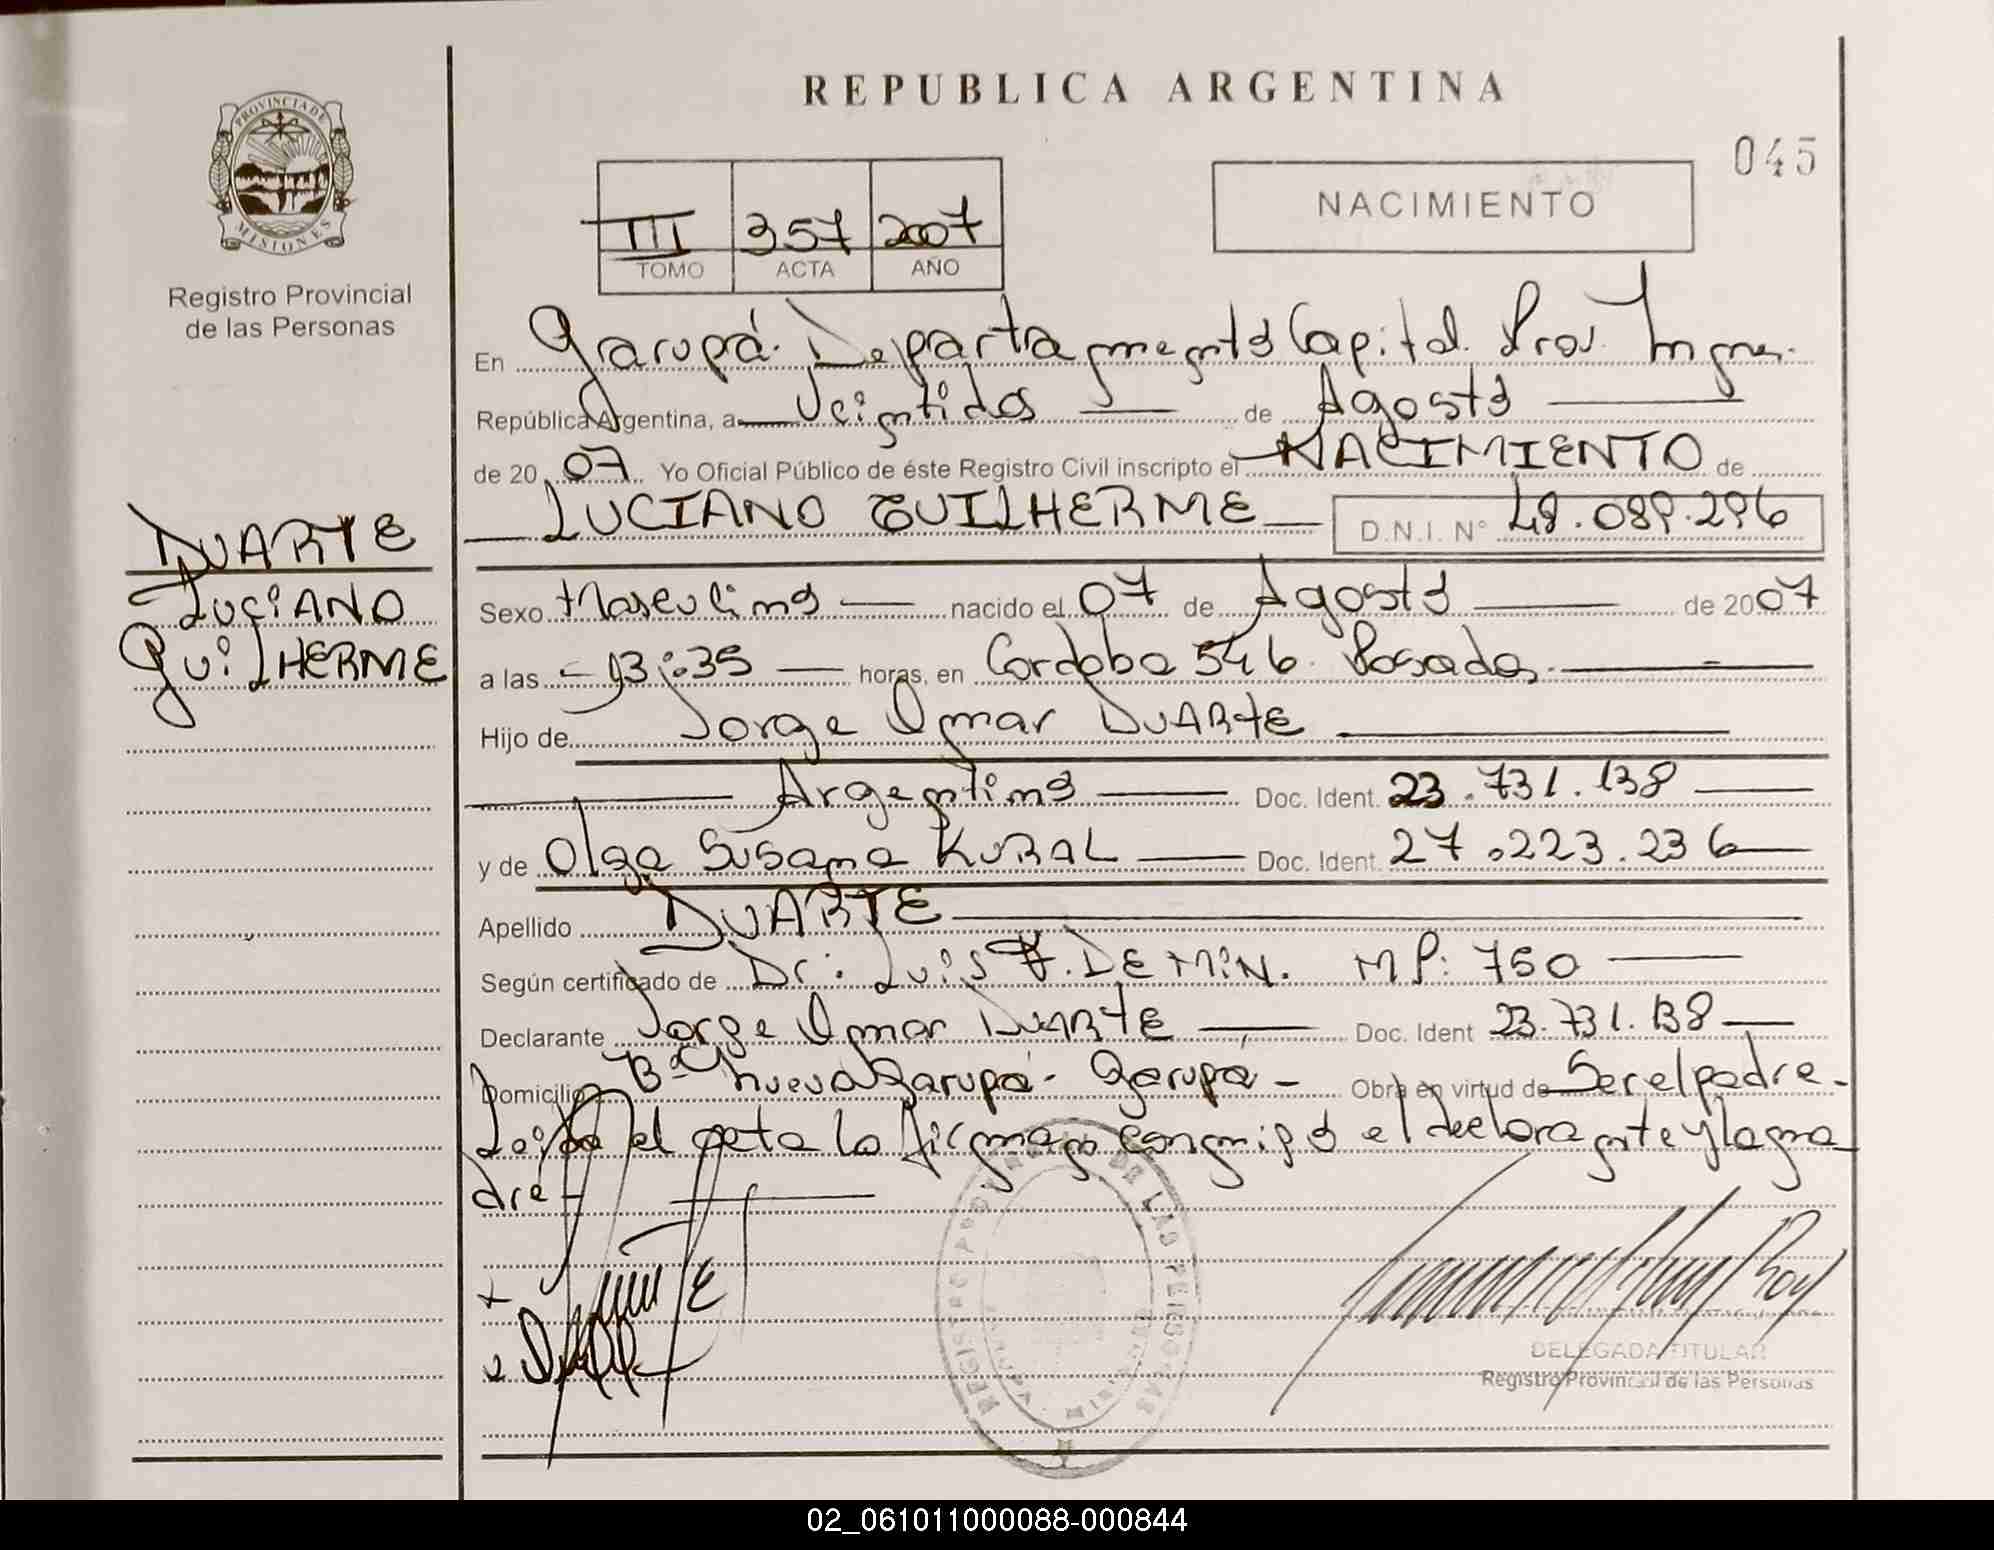 REPUBLICA ARGENTINA
045
PROVINCIA DE
MISIONES
Registro Provincial
de las Personas
III 357 2007
TOMO ACTA AÑO
NACIMIENTO
En Garupá. Departamento Capital. Prov. Mnes.
República Argentina, a Veintidos de Agosto
de 20 07 Yo Oficial Público de éste Registro Civil inscripto el NACIMIENTO de
LUCIANO GUILHERME D.N.I. N° 48.089.296
DUARTE
LUCIANO
GUILHERME
Sexo Masculino nacido el 07 de Agosto de 2007
a las 13:35 horas, en Cordoba 546. Posadas.
Hijo de Jorge Omar DUARTE
Argentino Doc. Ident. 23.731.138
y de Olga Susana KURAL Doc. Ident. 27.223.236
Apellido DUARTE
Según certificado de Dr: Luis DEMIN. MP: 750
Declarante Jorge Omar DUARTE Doc. Ident 23.731.138
Domicilio Bº Nueva Garupá - Garupá - Obra en virtud de Ser el padre -
Leida el acta la firman conmigo el declarante y la ma
dre -
DELEGADA TITULAR
Registro Provincial de las Personas
02_061011000088-000844